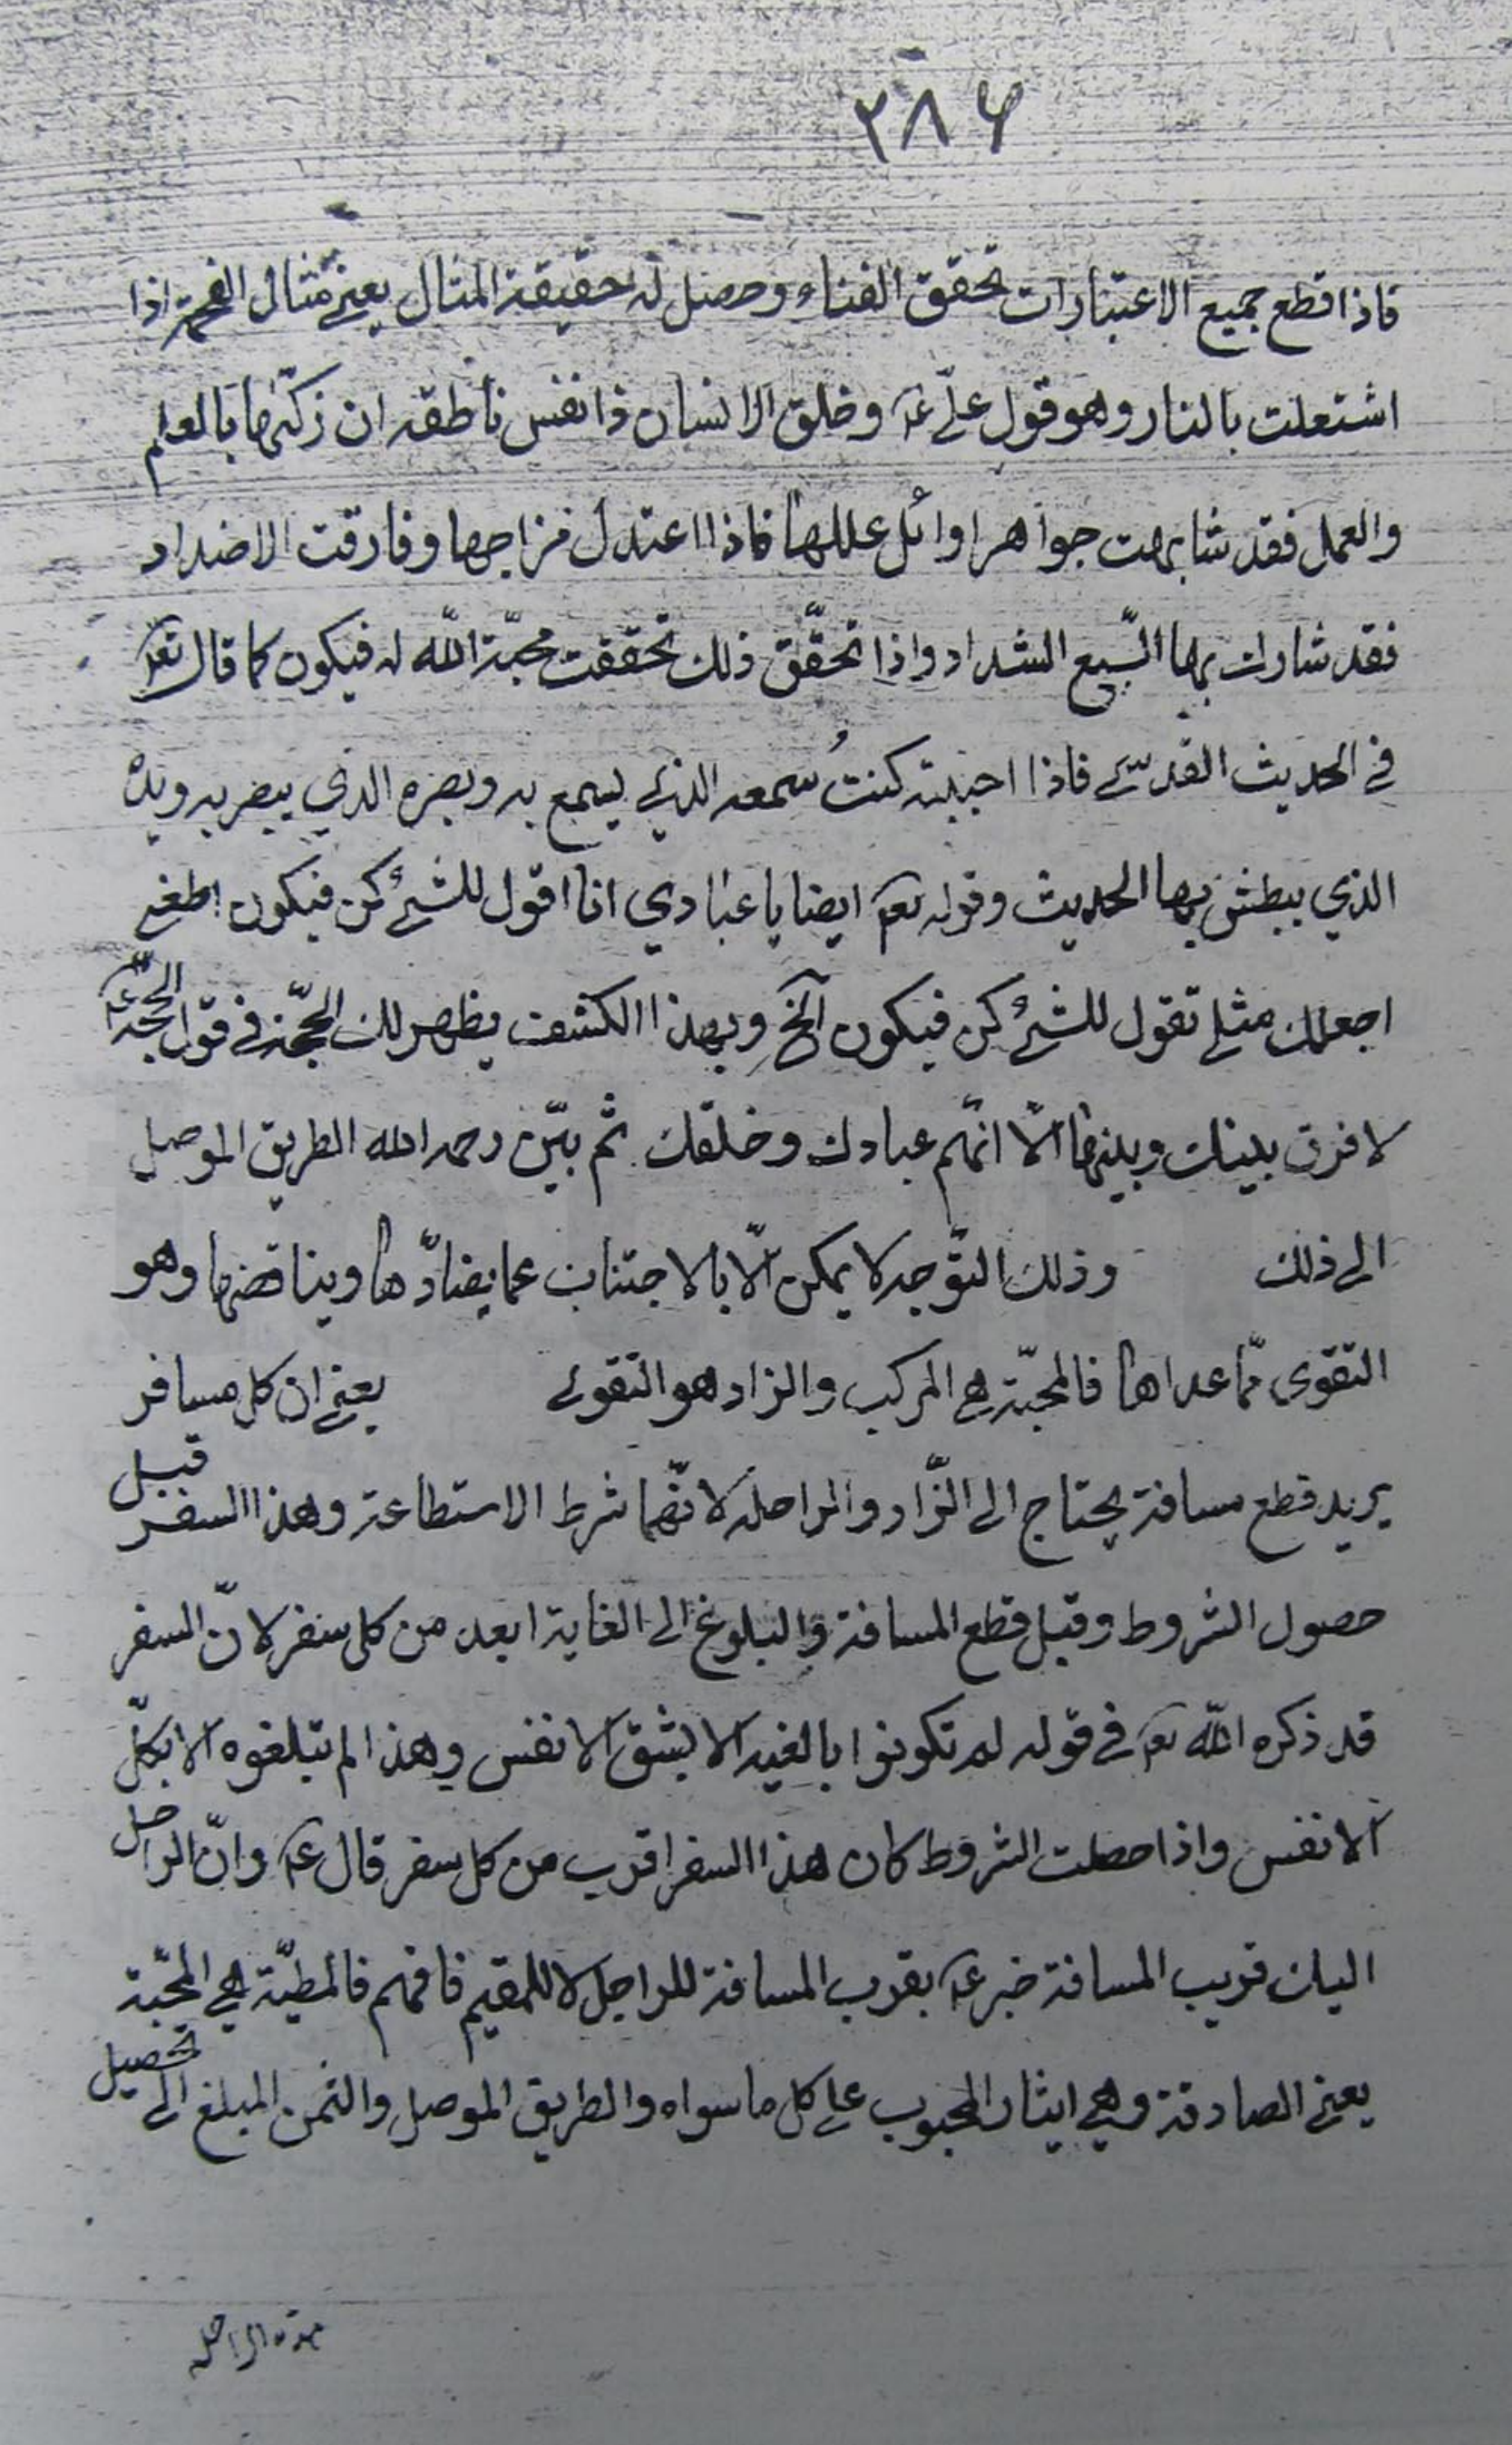 ٢٨٦
فاذا قطع جميع الاعتبارات تحقق الفناء وحصل له حقيقة المثال يعني مثال الفحمة اذا
اشتعلت بالنار وهو قول عليّ عم وخلق الانسان ذا نفس ناطقه ان زكّيها بالعلم
والعمل فقد شابهت جواهر اوائل عللها فاذا اعتدل مزاجها وفارقت الاضداد
فقد شارك بها السّبع الشداد واذا تحقّق ذلك تحققت محبّة الله له فيكون كما قال تعم
في الحديث القدّسي فاذا احببته كنتُ سمعه الذي يسمع به وبصره الذي يبصر به ويده
الذي يبطش بها الحديث وقوله تعم ايضا يا عبادي انا اقول للشئ كن فيكون اطعني
اجعلك مثلي تقول للشئ كن فيكون آلخ وبهذا الكشف يظهر لك الحجّة في قول الحجّة عم
لا فرق بينك وبينها الّا انّهم عبادك وخلقك ثم بيّن رحمه الله الطريق الموصل
الى ذلك وذلك التوّجه لا يمكن الّا بالاجتناب عما يضادّها ويناقضها وهو
التقوى ممّا عداها فالمحبّة هي المركب والزاد هو التقوى يعني ان كل مسافر
يريد قطع مسافة يحتاج الى الزّاد والراحلة لانّهما شرط الاستطاعة وهذا السفر قبل
حصول الشروط وقبل قطع المسافة والبلوغ الى الغاية ابعد من كل سفر لانّ السفر
قد ذكره الله تعم في قوله لم تكونوا بالغيه الا بشق الانفس وهذا لم تبلغوه الا بكلّ
الانفس واذا حصلت الشروط كان هذا السفر اقرب من كل سفر قال عم وانّ الراحل
اليك قريب المسافة خبر عم بقرب المسافة للراحل لا للمقيم فافهم فالمطيّة هي المحبّة
يعني الصادقة وهي ايثار المحبوب على كل ما سواه والطريق الموصل والثمن المبلغ الى تحصيل
الراحله